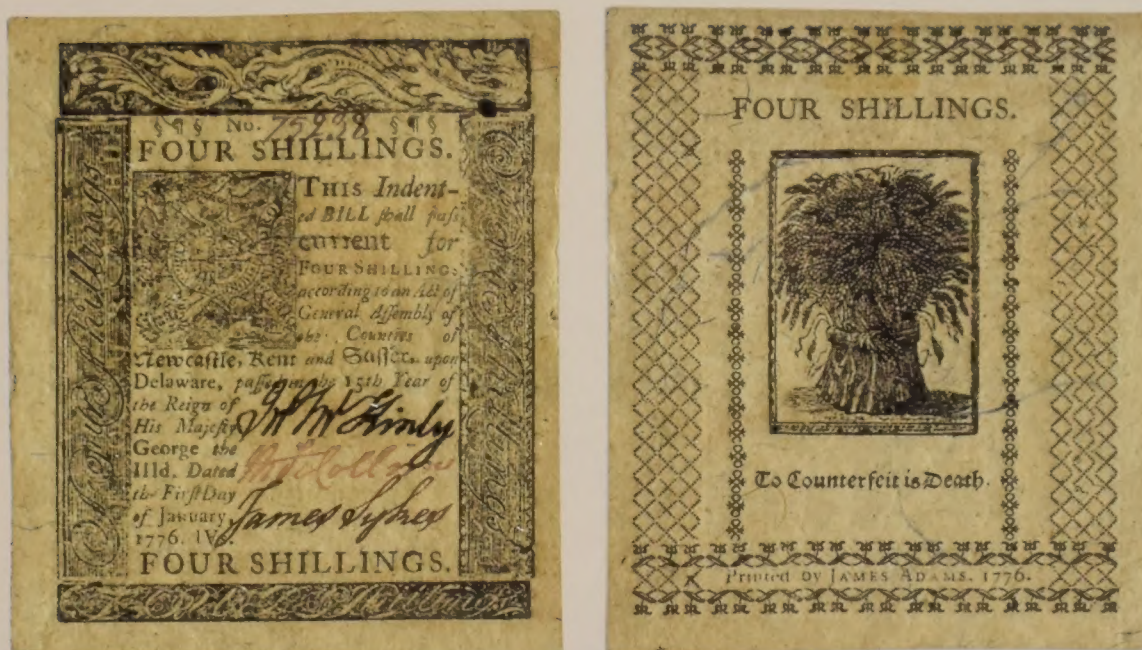 § ¶ § No. 75238 § ¶ §
FOUR SHILLINGS.
THIS Indent-
ed BILL ſhall paſs
current for
FOUR SHILLINGS
according to an Act of
General Aſſembly of
the Counties of
Newcaſtle, Kent and Suſſex, upon
Delaware, paſſed in the 15th Year of
the Reign of
His Majeſty
George the
IIId. Dated
the Firſt Day
of January
1776. IV
Jn McKinly
James Sykes
FOUR SHILLINGS.
Four Shillings
FOUR SHILLINGS.
To Counterfeit is Death.
Printed by JAMES ADAMS. 1776.